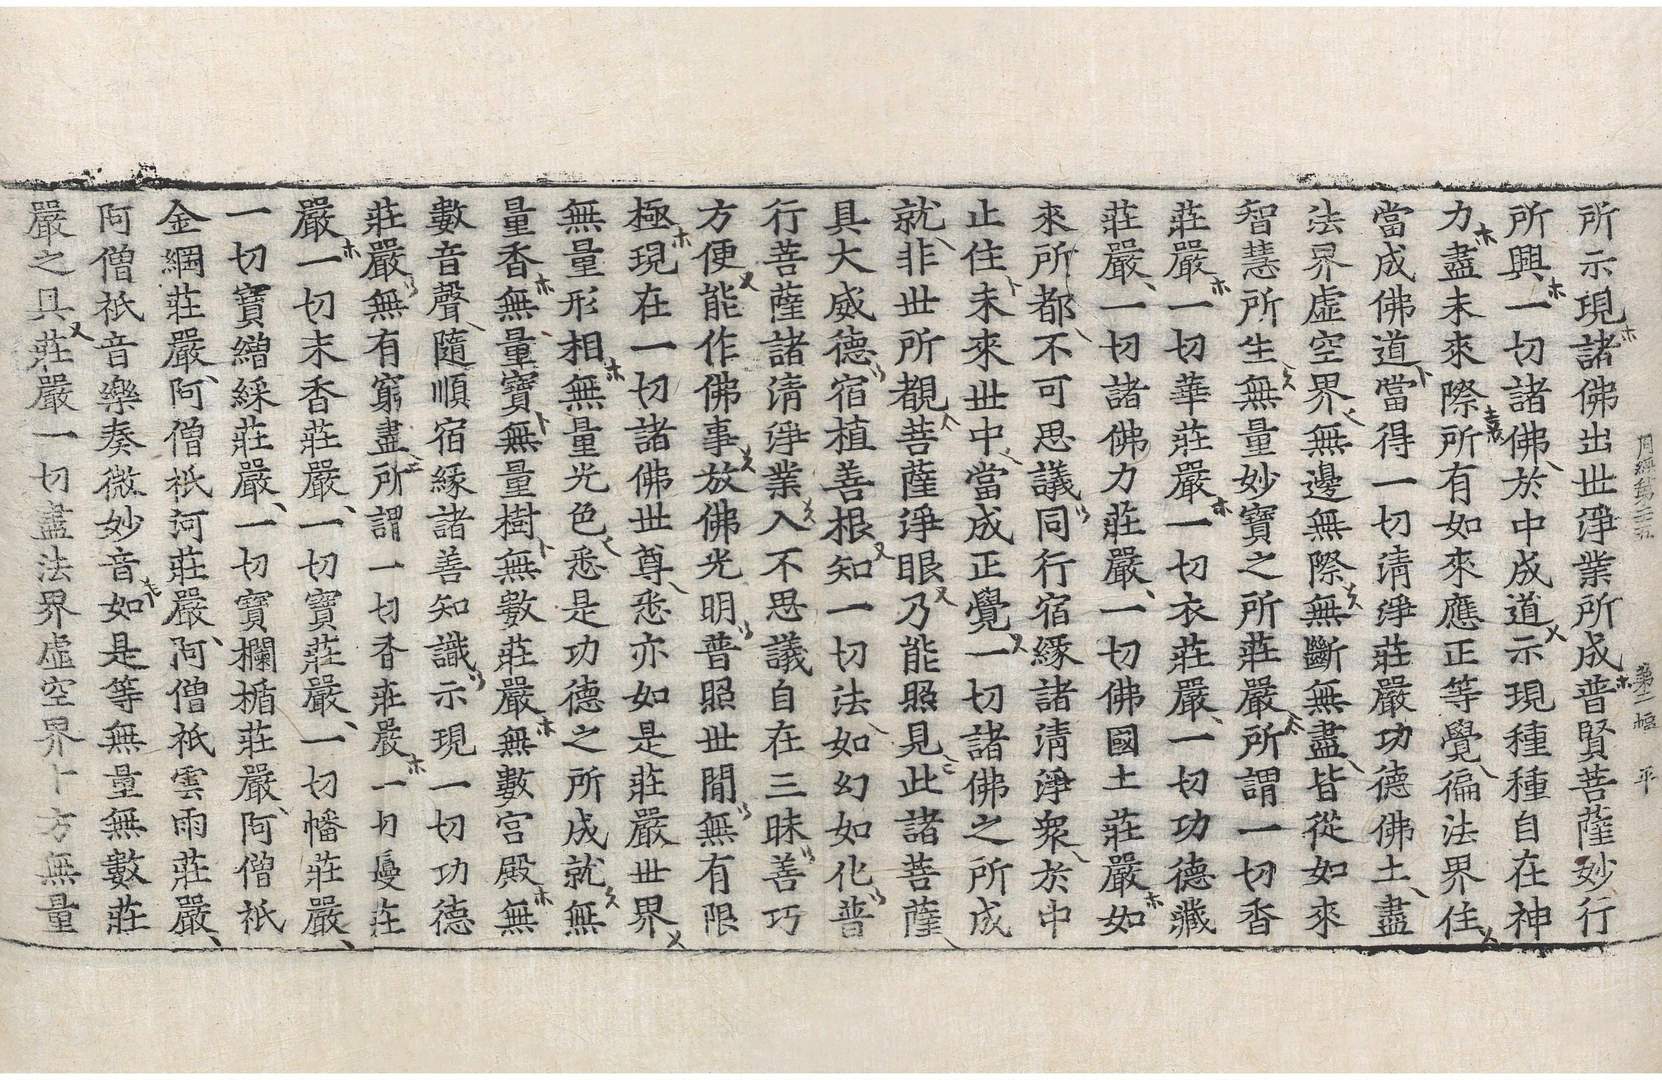 周經第三十五 第十二幅 平
所示現諸佛出世淨業所成普賢菩薩妙行
所興一切諸佛於中成道示現種種自在神
力盡未來際所有如來應正等覺徧法界住
當成佛道當得一切清淨莊嚴功德佛土盡
法界虛空界無邊無際無斷無盡皆從如來
智慧所生無量妙寶之所莊嚴所謂一切香
莊嚴一切華莊嚴一切衣莊嚴一切功德藏
莊嚴一切諸佛力莊嚴一切佛國土莊嚴如
來所都不可思議同行宿緣諸清淨衆於中
止住未來世中當成正覺一切諸佛之所成
就非世所覩菩薩淨眼乃能照見此諸菩薩
具大威德宿植善根知一切法如幻如化普
行菩薩諸清淨業入不思議自在三昧善巧
方便能作佛事放佛光明普照世間無有限
極現在一切諸佛世尊悉亦如是莊嚴世界
無量形相無量光色悉是功德之所成就無
量香無量寶無量樹無數莊嚴無數宮殿無
數音聲隨順宿緣諸善知識示現一切功德
莊嚴無有窮盡所謂一切香莊嚴一切鬘莊
嚴一切末香莊嚴一切寶莊嚴一切幡莊嚴
一切寶繒綵莊嚴一切寶欄楯莊嚴阿僧祇
金網莊嚴阿僧祇河莊嚴阿僧祇雲雨莊嚴
阿僧祇音樂奏微妙音如是等無量無數莊
嚴之具莊嚴一切盡法界虛空界十方無量